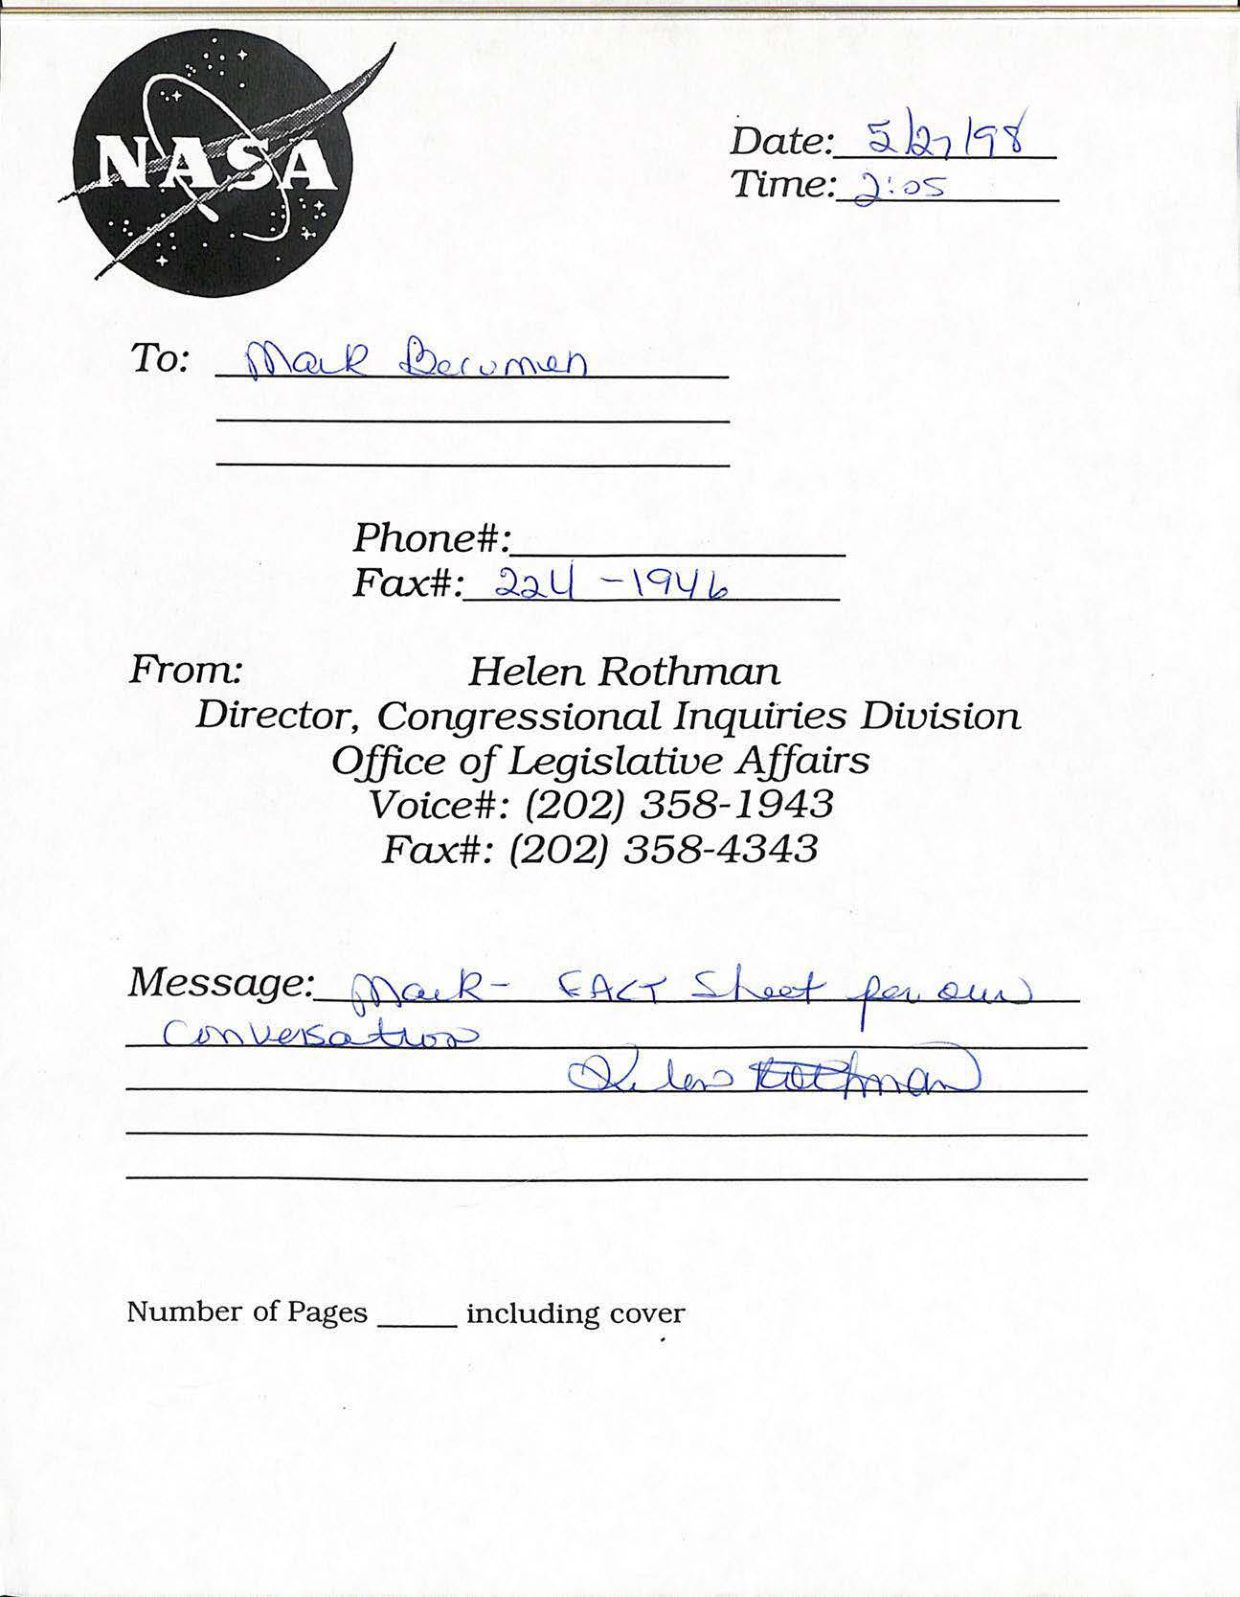 NASA
Date: 5/27/98
Time: 2:05
To: Mark Berumen
Phone#:
Fax#: 224-1946
From: Helen Rothman
Director, Congressional Inquiries Division
Office of Legislative Affairs
Voice#: (202) 358-1943
Fax#: (202) 358-4343
Message: Mark- FACT Sheet per our
Conversation
Helen Rothman
Number of Pages _____ including cover